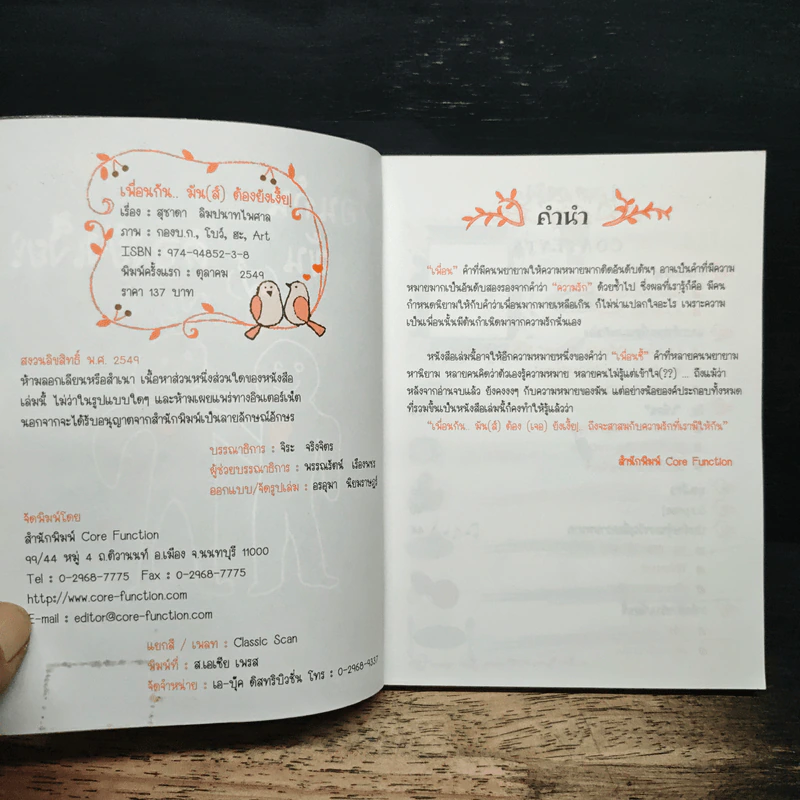 เพื่อนกัน.. มัน(ส์) ต้องยังเงี้ย!
เรื่อง : สุชาดา ลิมปนาทไพศาล
ภาพ : กองบ.ก., โบว์, ฮะ, Art
ISBN : 974-94852-3-8
พิมพ์ครั้งแรก : ตุลาคม 2549
ราคา 137 บาท
สงวนลิขสิทธิ์ พ.ศ. 2549
ห้ามลอกเลียนหรือสำเนา เนื้อหาส่วนหนึ่งส่วนใดของหนังสือ
เล่มนี้ ไม่ว่าในรูปแบบใดๆ และห้ามเผยแพร่ทางอินเตอร์เน็ต
นอกจากจะได้รับอนุญาตจากสำนักพิมพ์เป็นลายลักษณ์อักษร
บรรณาธิการ : จิระ จริงจิตร
ผู้ช่วยบรรณาธิการ : พรรณรัตน์ เรืองพชร
ออกแบบ/จัดรูปเล่ม : อรอุมา นิยมราษฎร์
จัดพิมพ์โดย
สำนักพิมพ์ Core Function
99/44 หมู่ 4 ถ.ติวานนท์ อ.เมือง จ.นนทบุรี 11000
Tel : 0-2968-7775 Fax : 0-2968-7775
http://www.core-function.com
E-mail : editor@core-function.com
แยกสี / เพลท : Classic Scan
พิมพ์ที่ : ส.เอเซีย เพรส
จัดจำหน่าย : เอ-บุ๊ค ดิสทริบิวชั่น โทร : 0-2968-9337
คำนำ
"เพื่อน" คำที่มีคนพยายามให้ความหมายมากติดอันดับต้นๆ อาจเป็นคำที่มีความ
หมายมากเป็นอันดับสองรองจากคำว่า "ความรัก" ด้วยซ้ำไป ซึ่งผลที่เรารู้ก็คือ มีคน
กำหนดนิยามให้กับคำว่าเพื่อนมากมายเหลือเกิน ก็ไม่น่าแปลกใจอะไร เพราะความ
เป็นเพื่อนนั้นมีต้นกำเนิดมาจากความรักนั่นเอง
หนังสือเล่มนี้อาจให้อีกความหมายหนึ่งของคำว่า "เพื่อนซี้" คำที่หลายคนพยายาม
หานิยาม หลายคนคิดว่าตัวเองรู้ความหมาย หลายคนไม่รู้แต่เข้าใจ(??) ... ถึงแม้ว่า
หลังจากอ่านจบแล้ว ยังคงงงๆ กับความหมายของมัน แต่อย่างน้อยองค์ประกอบทั้งหมด
ที่รวมขึ้นเป็นหนังสือเล่มนี้ก็คงทำให้รู้แล้วว่า
"เพื่อนกัน.. มัน(ส์) ต้อง (เจอ) ยังเงี้ย!.. ถึงจะสาสมกับความรักที่เรามีให้กัน"
สำนักพิมพ์ Core Function